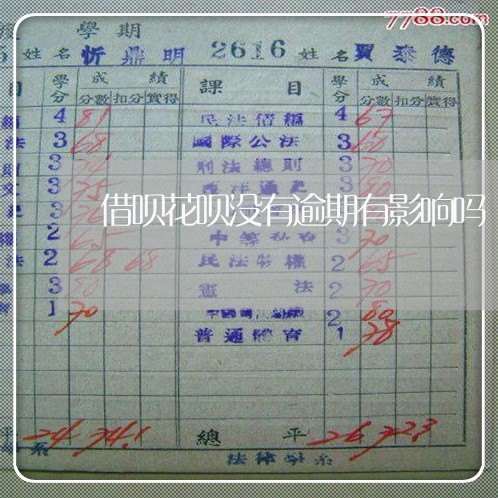 7788.com
學期
姓名 忻鼎明 2616 姓名 賈泰德
目 學分 成績 課目 學分 成績
分數 扣分 實得 分數 扣分 實得
4 81 民法債編 4 67
法 3 68 國際公法 3 60
3 刑法總則 3 70
3 75 西洋通史 3 80
借呗花呗没有逾期有影响吗
2 65 3 70
法 2 68 68 民法物權 2 65
3 80 憲法 2 70
1 70 2 80
普通體育 1 78
平 24 74.1 總平 26 72.3
系 法律學系